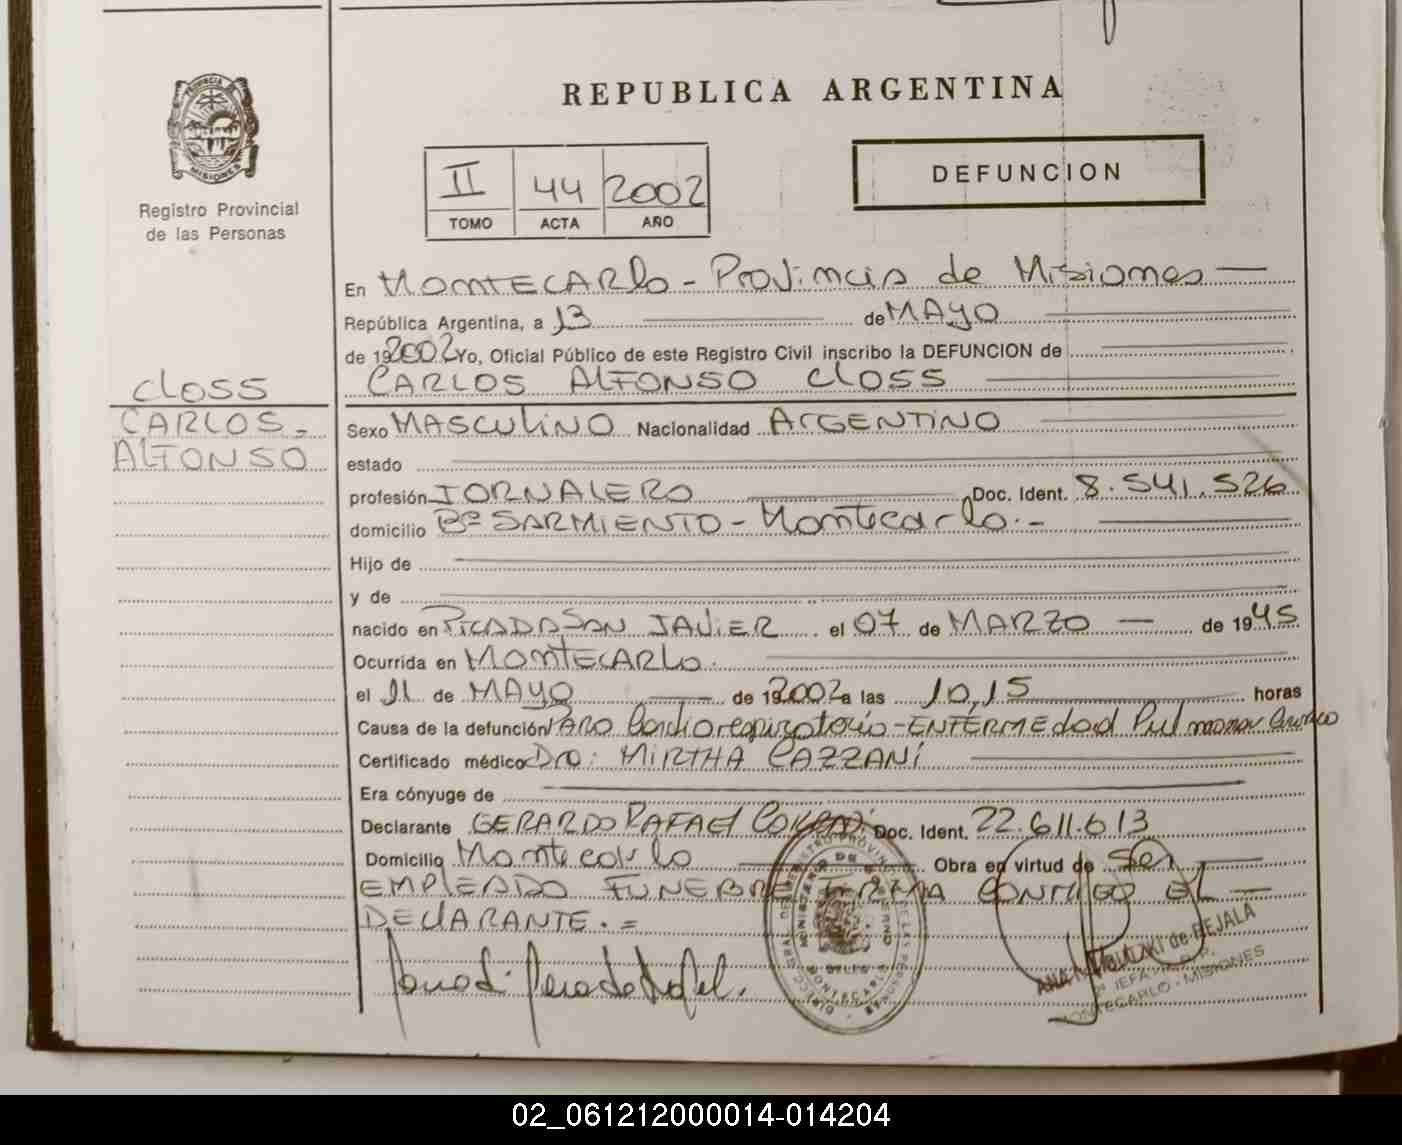 PROVINCIA DE
MISIONES
Registro Provincial
de las Personas
REPUBLICA ARGENTINA
II 44 2002
TOMO ACTA AÑO
DEFUNCION
En MONTECARlo - Provincia de Misiones
República Argentina, a 13 de MAYO
de 19 2002 Yo, Oficial Público de este Registro Civil inscribo la DEFUNCION de
CARLOS ALFONSO CLOSS
CLOSS
CARLOS -
ALFONSO
Sexo MASCULINO Nacionalidad ARGENTINO
estado
profesión JORNALERO Doc. Ident. 8.541.526
domicilio Bº SARMIENTO - Montecarlo.-
Hijo de
y de
nacido en PICADA SAN JAVIER el 07 de MARZO de 1945
Ocurrida en MONTECARLO.
el 11 de MAYO de 19 2002 a las 10,15 horas
Causa de la defunción PARO Cardiorespiratorio - ENFERMEdad Pulmonar
Certificado médico Dra: MIRTHA CAZZANI
Era cónyuge de
Declarante GERARDO RAFAEL Doc. Ident. 22.611.613
Domicilio Montecarlo Obra en virtud de Ser
EMPLEADO FUNEBRE FIRMA CONMIGO EL
DECLARANTE.=
de BEJALA
MONTECARLO - MISIONES
02_061212000014-014204